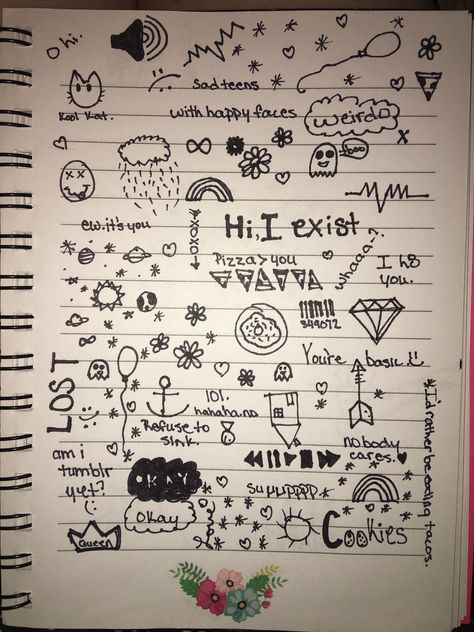 Ohi.
sad teens
Kool Kat.
with happy faces
weirdo
boo
x
ew. it's you
XOXO
Hi, I exist
whaaa..?
Pizza > you
I h8
you.
349072
You're basic.
LOST
lol.
hahaha.no
Refuse to
sink.
nobody
cares.
*I'd rather be eating tacos.
am i
tumblr
yet?
suppppp.
okay
Queen
Cookies